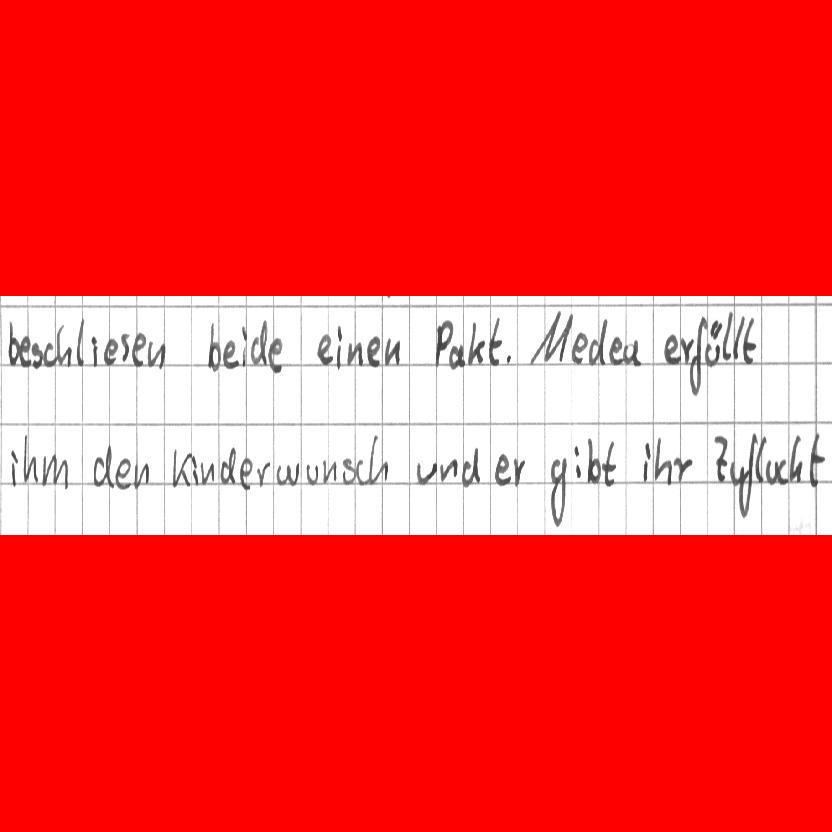 beschliesen beide einen Pakt. Medea erfüllt
ihm den Kinderwunsch und er gibt ihr Zuflucht